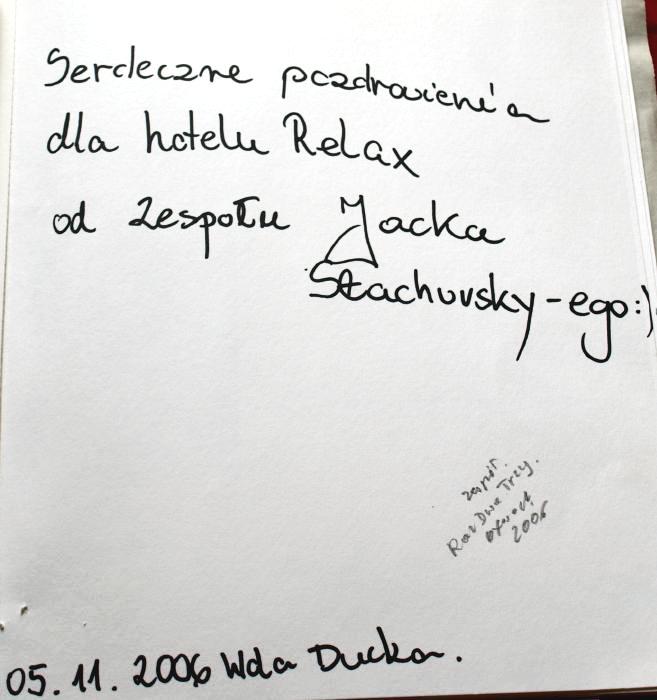 Serdeczne pozdrowienia
dla hotelu Relax
od zespołu Jacka
Stachursky-ego:)
zespół.
Raz Dwa Trzy.
2006
05.11.2006 Wda Ducka.